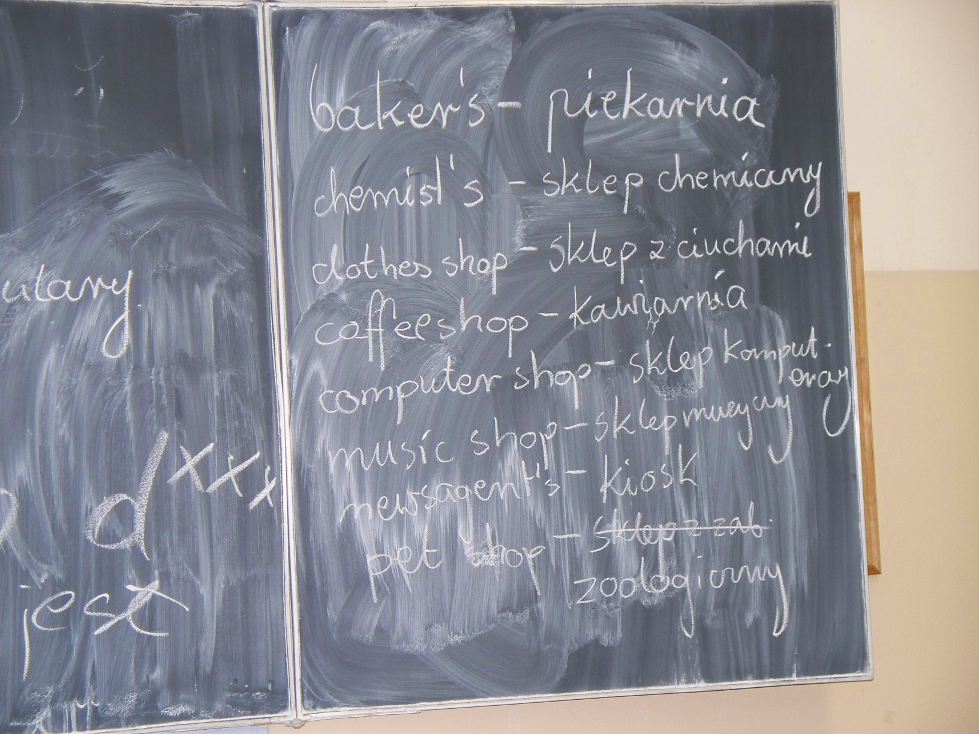 baker's - piekarnia
chemist's - sklep chemiczny
clothes shop - sklep z ciuchami
coffee shop - kawiarnia
computer shop - sklep komput.
erowy
music shop - sklep muzyczny
newsagent's - kiosk
pet shop - sklep z zab
zoologiczny
d xxx
jest